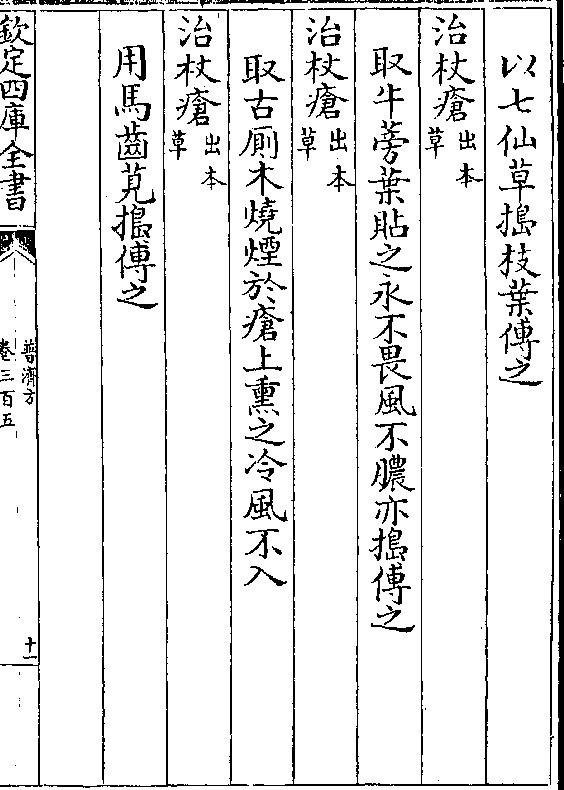 以七仙草搗枝葉傅之
治杖瘡出本草
取牛蒡葉貼之永不畏風不膿亦搗傅之
治杖瘡出本草
取古廁木燒煙於瘡上熏之冷風不入
治杖瘡出本草
用馬齒莧搗傅之
欽定四庫全書
普濟方
卷三百五
十一